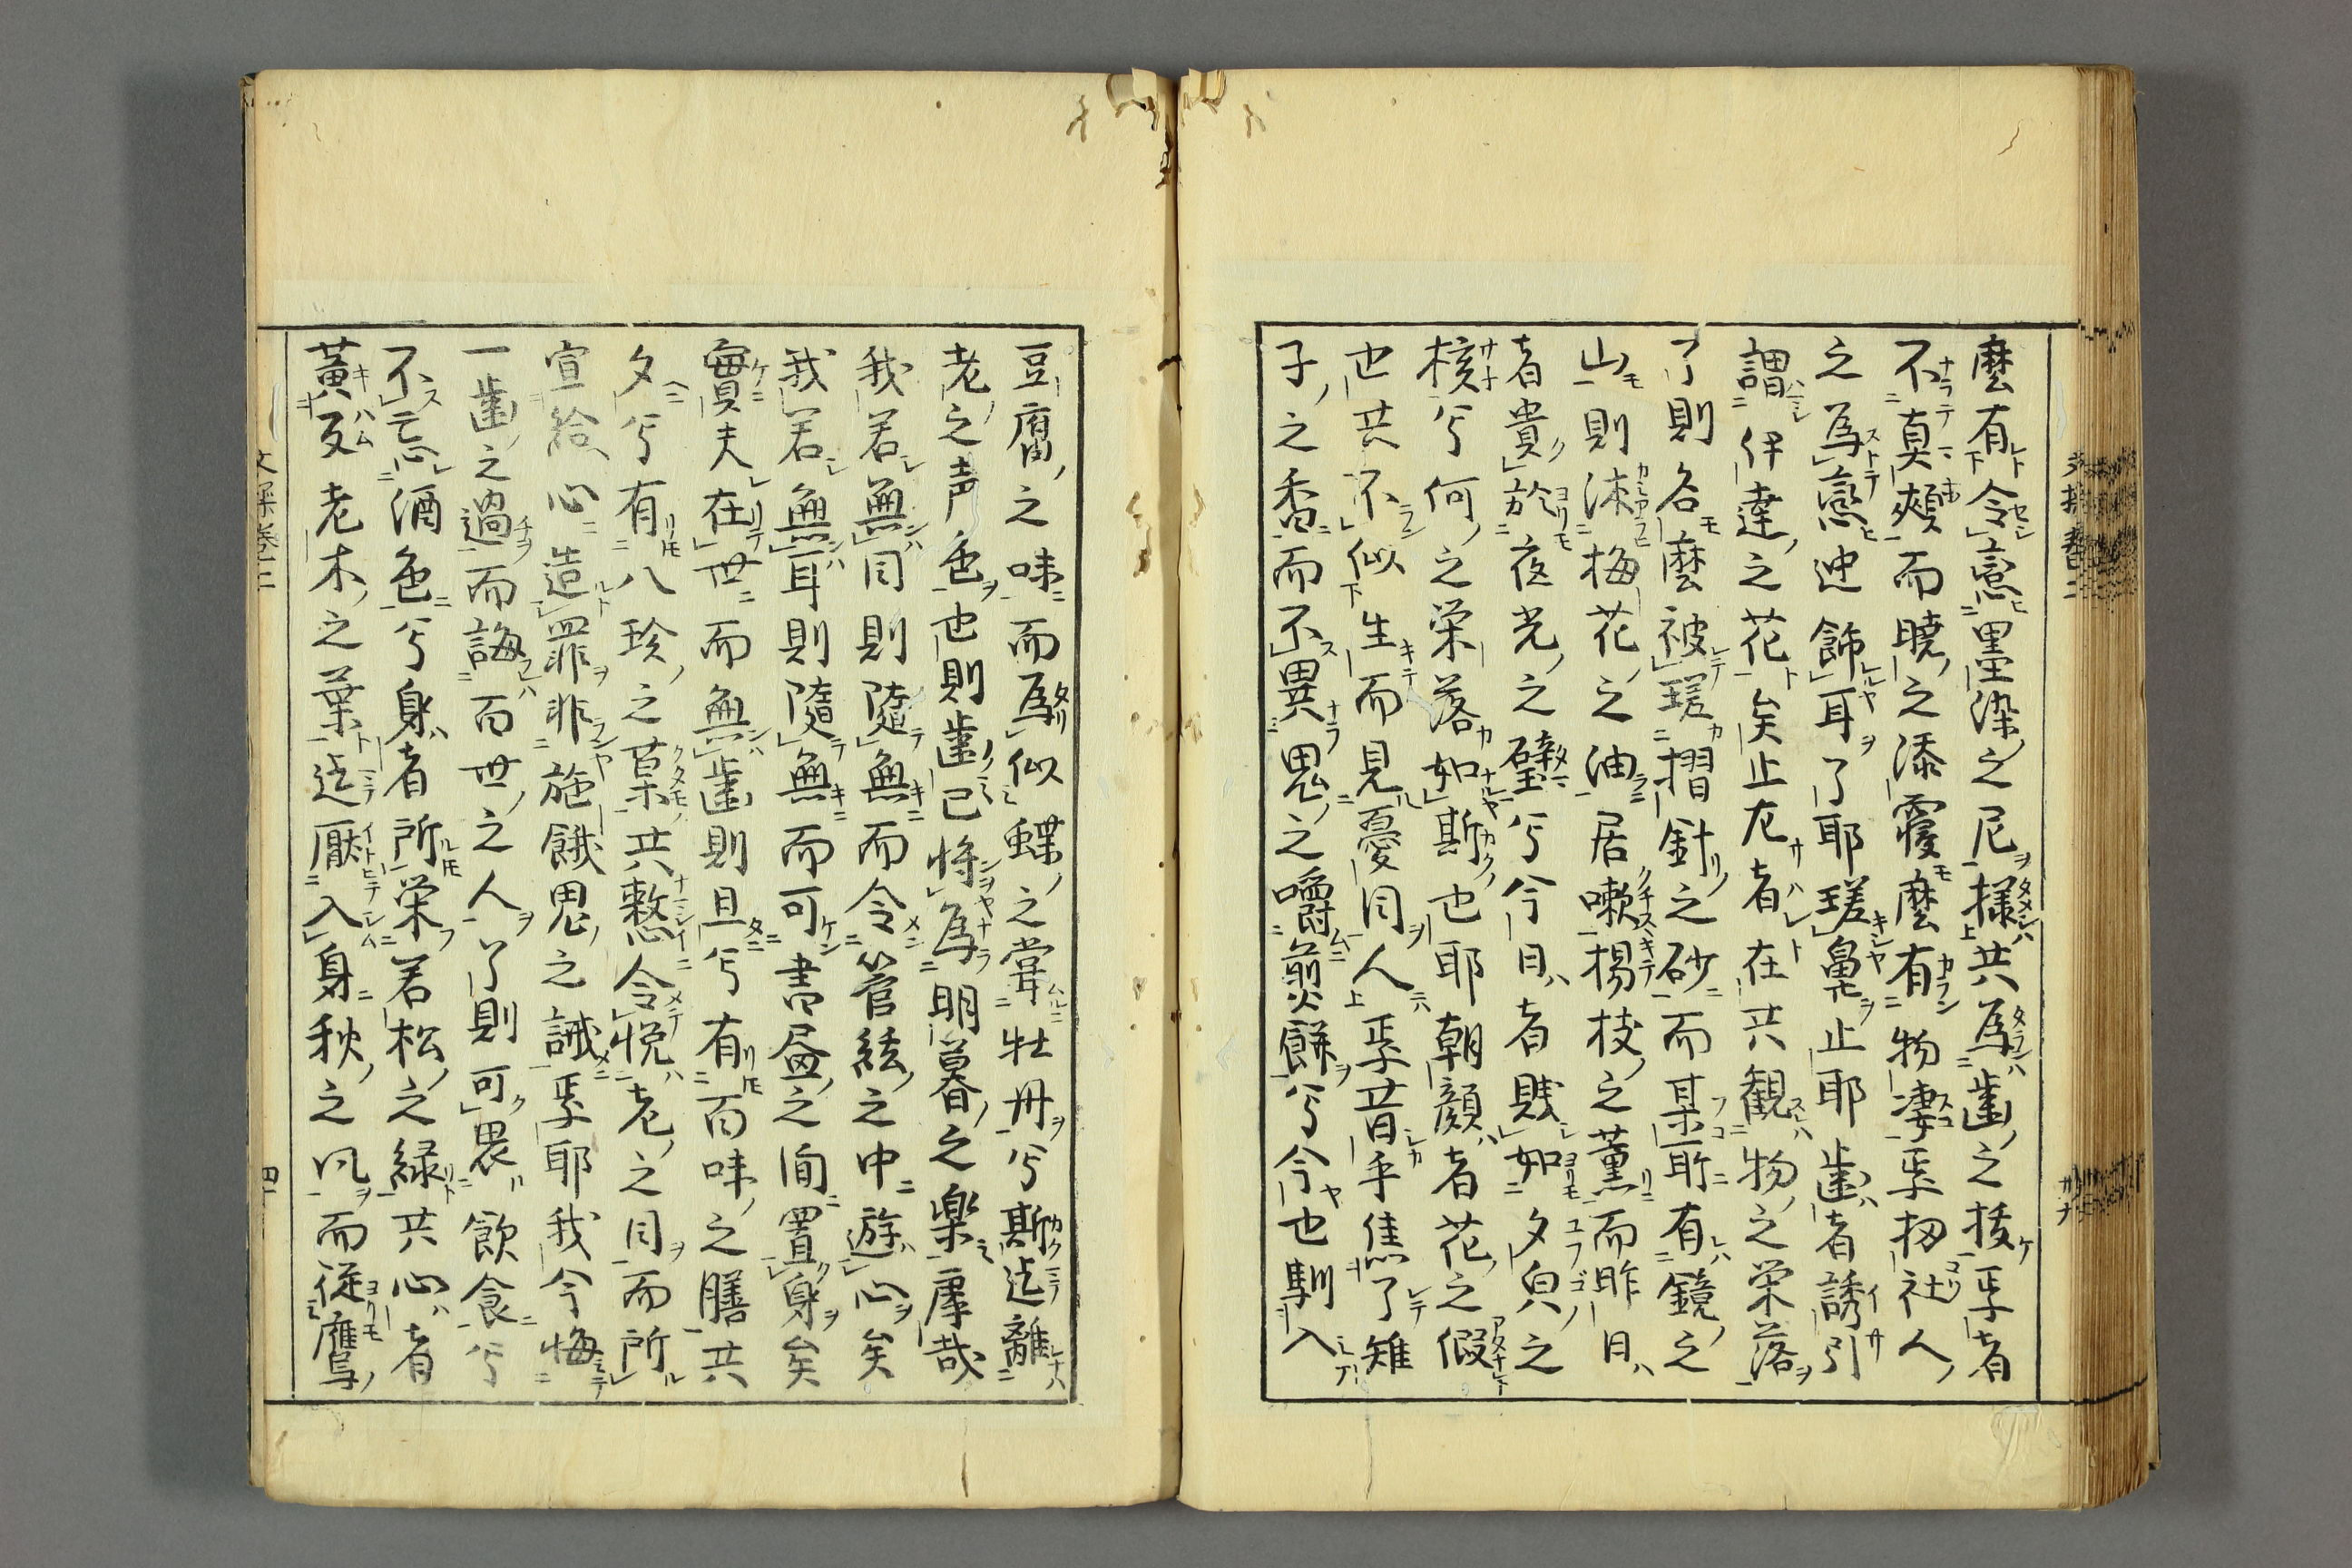 麼有令憙墨染之尼様共為歯之抜乎者
不真頰而暁之漆霞麼有物凄乎扨社人
之為憙迚餝耳了耶瑳鼻止耶歯者誘引
謂伊達之花矣止尤者在共観物之栄落
了則名麼被瑳摺針之砂而某耻有鏡之
山則漆梅花之油居嗽楊枝之薫而昨日
者貴於夜光之璧兮今日者賎如夕皃之
核兮何之栄落如斯也耶朝顔者花之假
也共不似生而見憂目人乎昔乎焦了雉
子之香而不異鬼之嚼煎餅兮今也馴入
豆腐之味而騖似蝶之甞牡丹兮斯迄離
老之声色也則歯已将為明暮之楽庫哉
我若無目則随無而令管絃之中遊心矣
我若無耳則随無而可書昼之間置身矣
實夫在世而無歯則旦兮有百味之膳共
夕兮有八珍之菓共憖令悦老之目而所
宣給心造罪非施餓鬼之誡乎耶我今悔
一歯之過而誨百世之人了則可畏飲食兮
不忘酒色兮身者所栄若松之緑共心者
黄反老木之葉迄厭入身秋之风而従鷹
文操巻二
四十